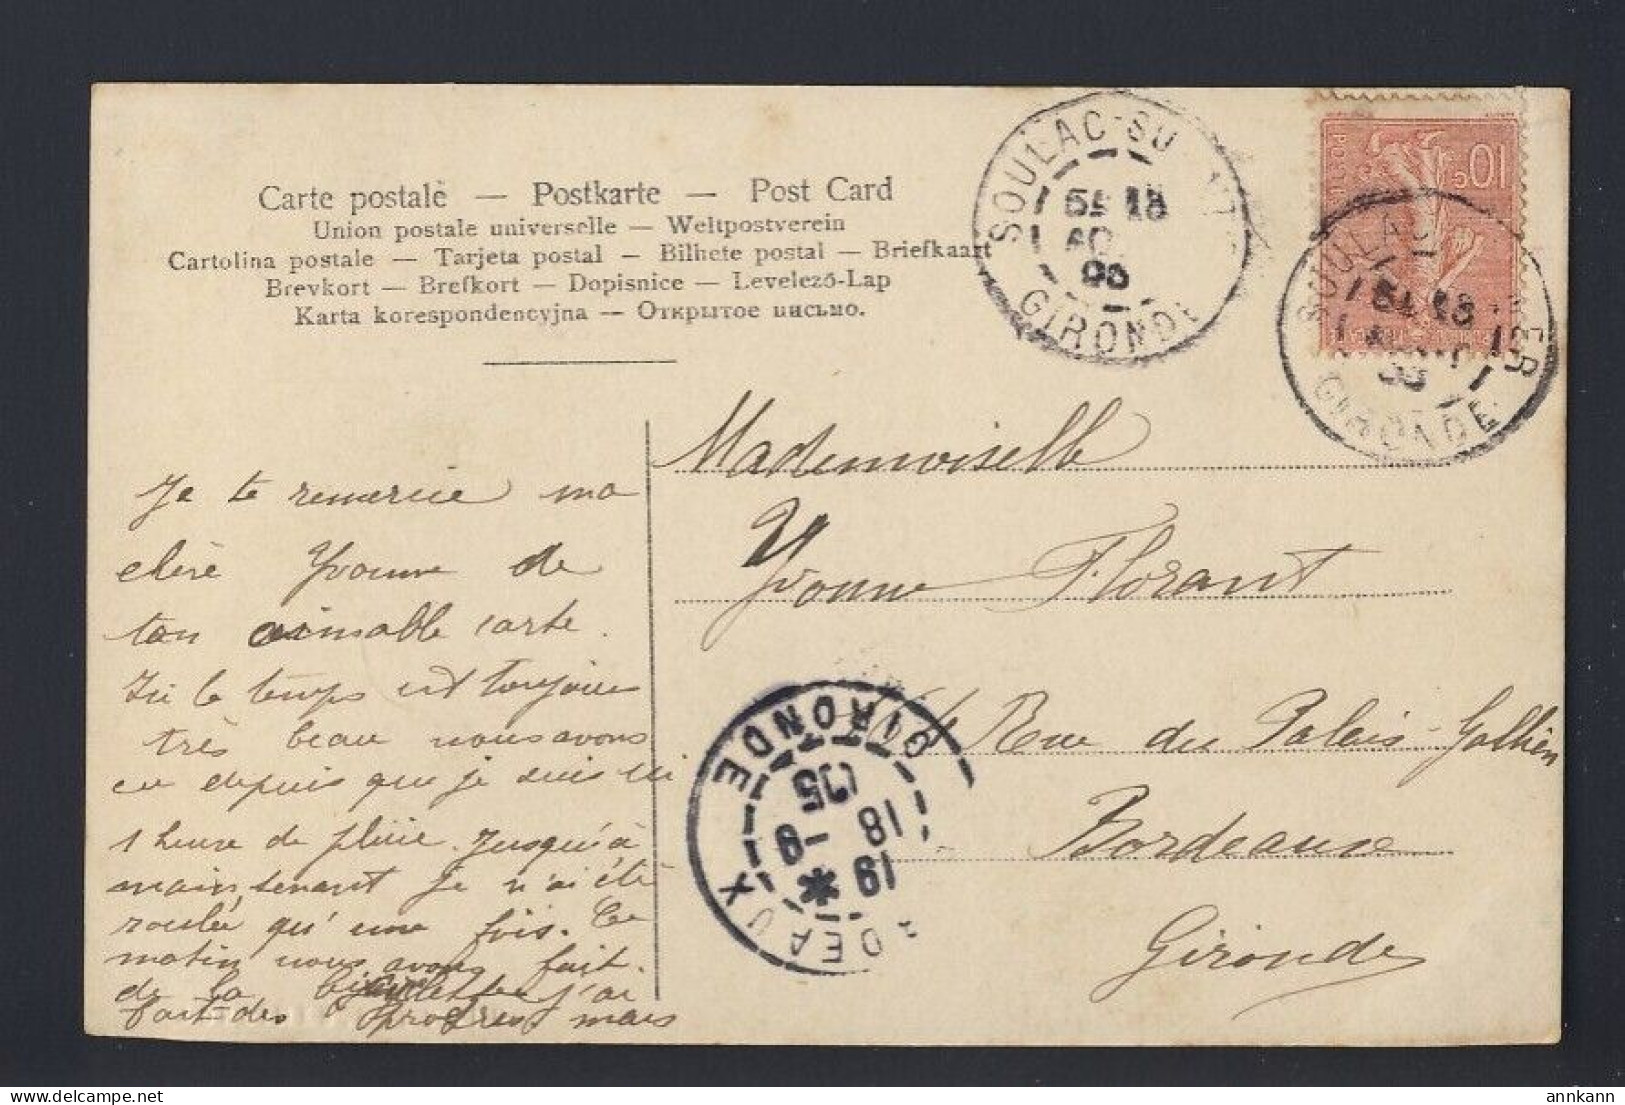 Carte postale — Postkarte — Post Card
Union postale universelle — Weltpostverein
Cartolina postale — Tarjeta postal — Bilhete postal — Briefkaart
Brevkort — Brefkort — Dopisnice — Levelező-Lap
Karta korespondencyjna — Открытое письмо.
SOULAC-SU
18
GIRONDE
10c
SOULAC
MER
GIRONDE
Mademoiselle
Yvonne Florant
Rue du Palais-Gallien
Bordeaux
Gironde
GIRONDE
18
19 * 9
05
DEAUX
Je te remercie ma
chère Yvonne de
ton aimable carte.
Ici le temps est toujours
très beau nous avons
eu depuis que je suis ici
1 heure de pluie. Jusqu'à
maintenant je n'ai été
roulée qu'une fois. Ce
matin nous avons fait
de la bicyclette j'ai
fait des progrès mais
annkann